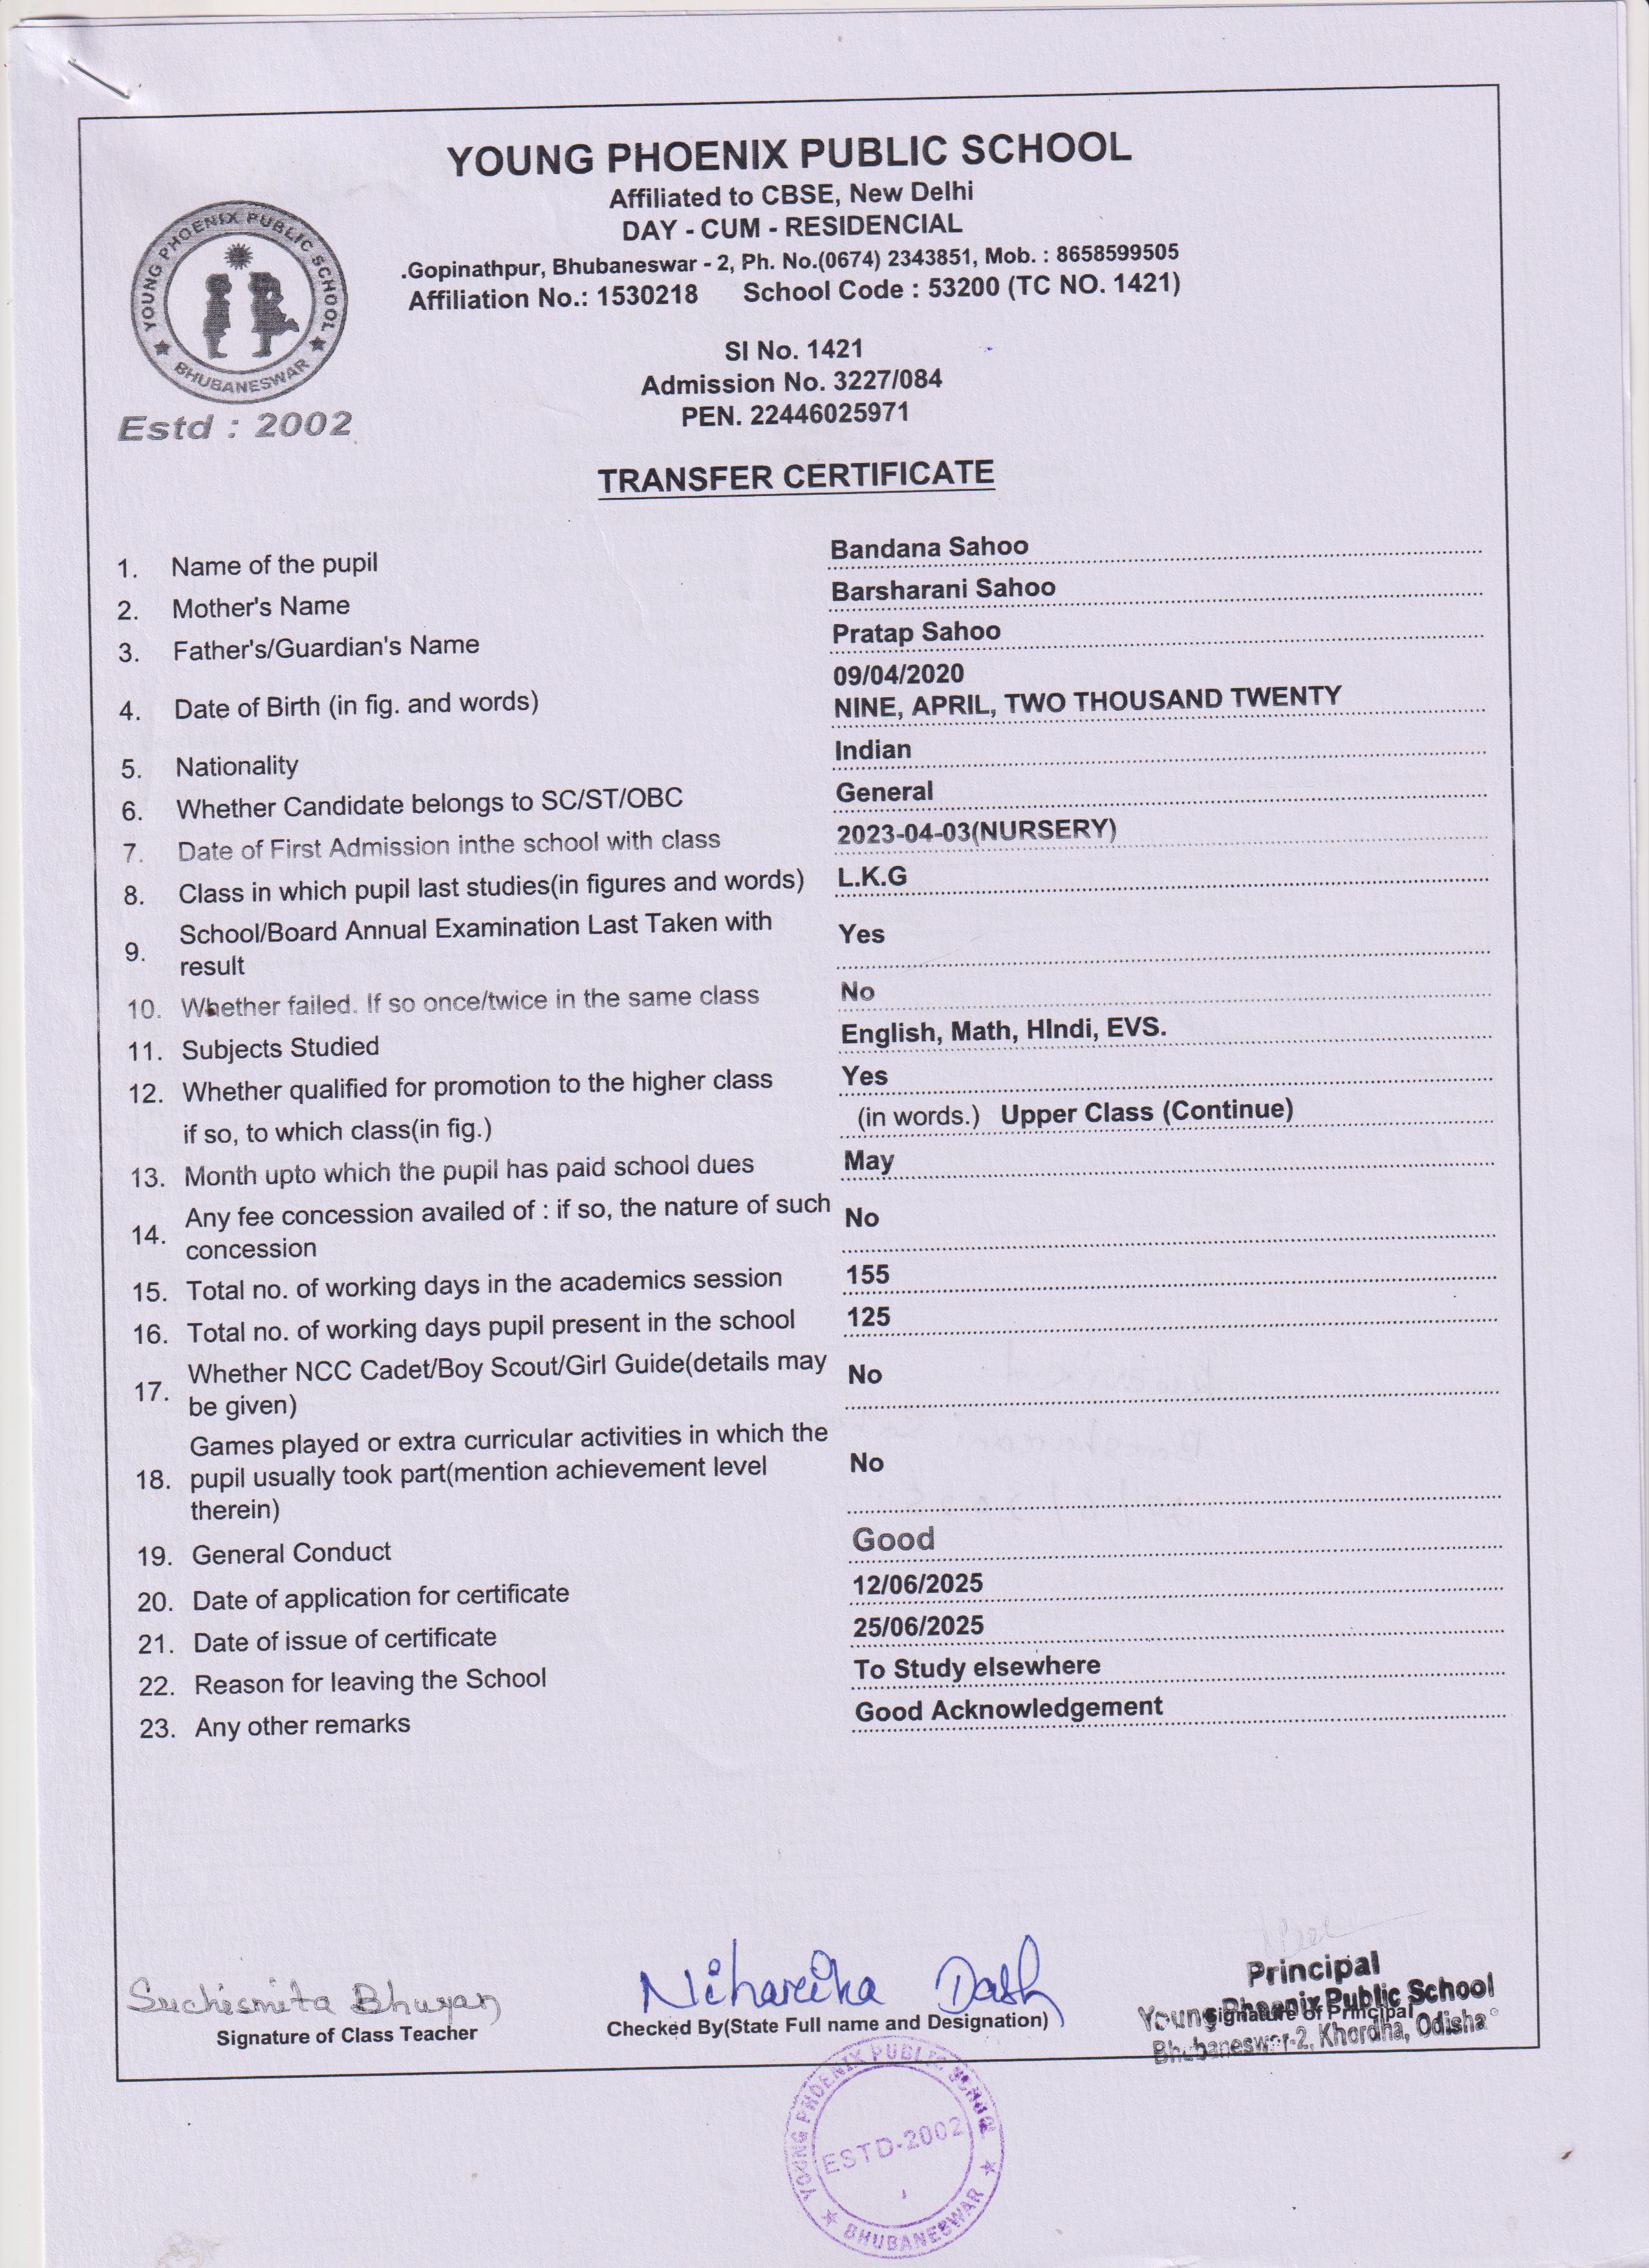 YOUNG PHOENIX PUBLIC SCHOOL
Affiliated to CBSE, New Delhi
DAY - CUM - RESIDENCIAL
.Gopinathpur, Bhubaneswar - 2, Ph. No.(0674) 2343851, Mob. : 8658599505
Affiliation No.: 1530218 School Code : 53200 (TC NO. 1421)
YOUNG PHOENIX PUBLIC SCHOOL
BHUBANESWAR
Estd : 2002
SI No. 1421
Admission No. 3227/084
PEN. 22446025971
TRANSFER CERTIFICATE
1. Name of the pupil Bandana Sahoo
2. Mother's Name Barsharani Sahoo
3. Father's/Guardian's Name Pratap Sahoo
09/04/2020
4. Date of Birth (in fig. and words) NINE, APRIL, TWO THOUSAND TWENTY
5. Nationality Indian
6. Whether Candidate belongs to SC/ST/OBC General
7. Date of First Admission inthe school with class 2023-04-03(NURSERY)
8. Class in which pupil last studies(in figures and words) L.K.G
9. School/Board Annual Examination Last Taken with Yes
result
10. Whether failed. If so once/twice in the same class No
11. Subjects Studied English, Math, HIndi, EVS.
12. Whether qualified for promotion to the higher class Yes
if so, to which class(in fig.) (in words.) Upper Class (Continue)
13. Month upto which the pupil has paid school dues May
14. Any fee concession availed of : if so, the nature of such No
concession
15. Total no. of working days in the academics session 155
16. Total no. of working days pupil present in the school 125
17. Whether NCC Cadet/Boy Scout/Girl Guide(details may No
be given)
Games played or extra curricular activities in which the
18. pupil usually took part(mention achievement level No
therein)
19. General Conduct Good
20. Date of application for certificate 12/06/2025
21. Date of issue of certificate 25/06/2025
22. Reason for leaving the School To Study elsewhere
23. Any other remarks Good Acknowledgement
Suchismita Bhuyan
Signature of Class Teacher
Niharika Dash
Checked By(State Full name and Designation)
Principal
Young Phoenix Public School
Signature of Principal
Bhubaneswar-2, Khordha, Odisha
YOUNG PHOENIX PUBLIC SCHOOL
ESTD-2002
BHUBANESWAR